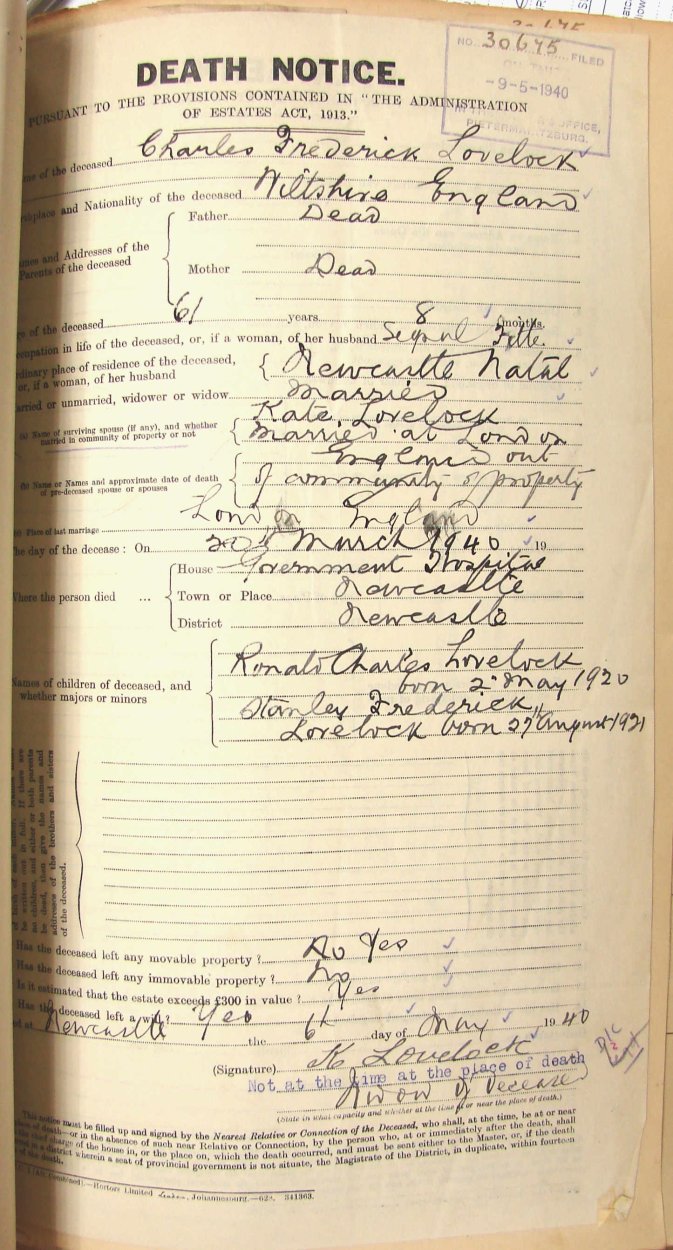 NO. 30645 FILED
-9-5-1940
OFFICE,
PIETERMARITZBURG.
DEATH NOTICE.
PURSUANT TO THE PROVISIONS CONTAINED IN "THE ADMINISTRATION
OF ESTATES ACT, 1913."
of the deceased Charles Frederick Lovelock
place and Nationality of the deceased Wiltshire England
and Addresses of the
Parents of the deceased
Father Dead
Mother Dead
of the deceased 61 years 8 months.
occupation in life of the deceased, or, if a woman, of her husband
ordinary place of residence of the deceased,
or, if a woman, of her husband
Newcastle Natal
married or unmarried, widower or widow Married
(a) Name of surviving spouse (if any), and whether
married in community of property or not
Kate Lovelock
Married at London
England out
of community of property
(b) Name or Names and approximate date of death
of pre-deceased spouse or spouses
(c) Place of last marriage London England
The day of the decease: On 20th March 1940 19
Where the person died ...
House Government Hospital
Town or Place Newcastle
District Newcastle
Names of children of deceased, and
whether majors or minors
Ronald Charles Lovelock
born 2nd May 1920
Stanley Frederick
Lovelock born 27 August 1921
be written out in full. If there are
no children, and either or both parents
be dead, then give the names and
addresses of the brothers and sisters
of the deceased.
Has the deceased left any movable property? No Yes
Has the deceased left any immovable property? No
Is it estimated that the estate exceeds £300 in value? Yes
Has the deceased left a will? Yes
at Newcastle the 6th day of May 1940
(Signature) K Lovelock
Not at the time at the place of death
Widow of Deceased
(State in what capacity and whether at the time at or near the place of death.)
This notice must be filled up and signed by the Nearest Relative or Connection of the Deceased, who shall, at the time, be at or near
place of death—or in the absence of such near Relative or Connection, by the person who, at or immediately after the death, shall
the chief charge of the house in, or the place on, which the death occurred, and must be sent either to the Master, or, if the death
in a district wherein a seat of provincial government is not situate, the Magistrate of the District, in duplicate, within fourteen
of the death.
Hortors Limited Johannesburg.—628. 341363.